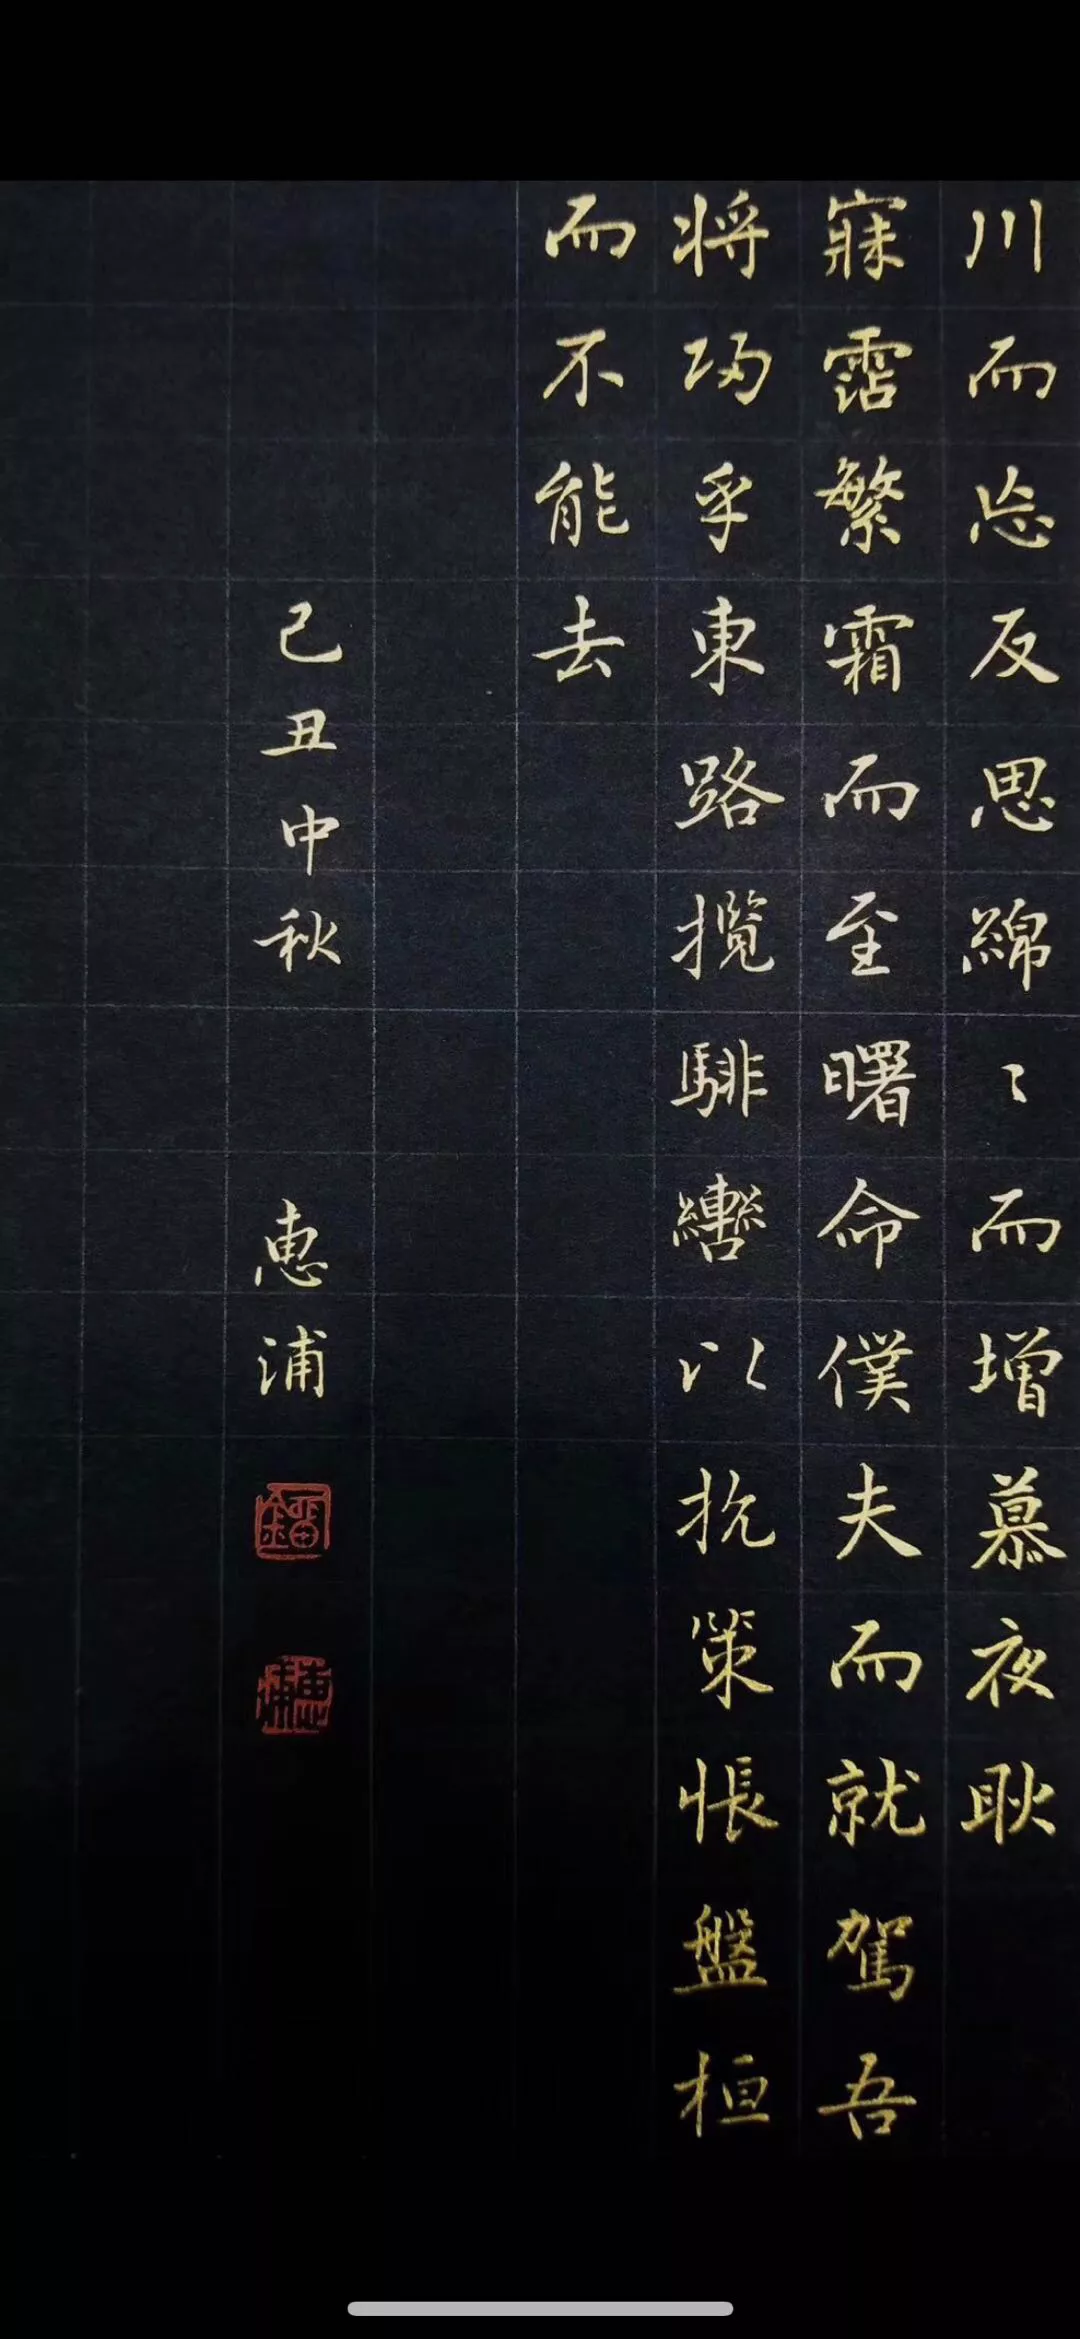 川而忘反思綿〻而增慕夜耿
寐霑繁霜而至曙命僕夫而就駕吾
将归乎東路攬騑轡以抗策悵盤桓
而不能去
己丑中秋 恵浦